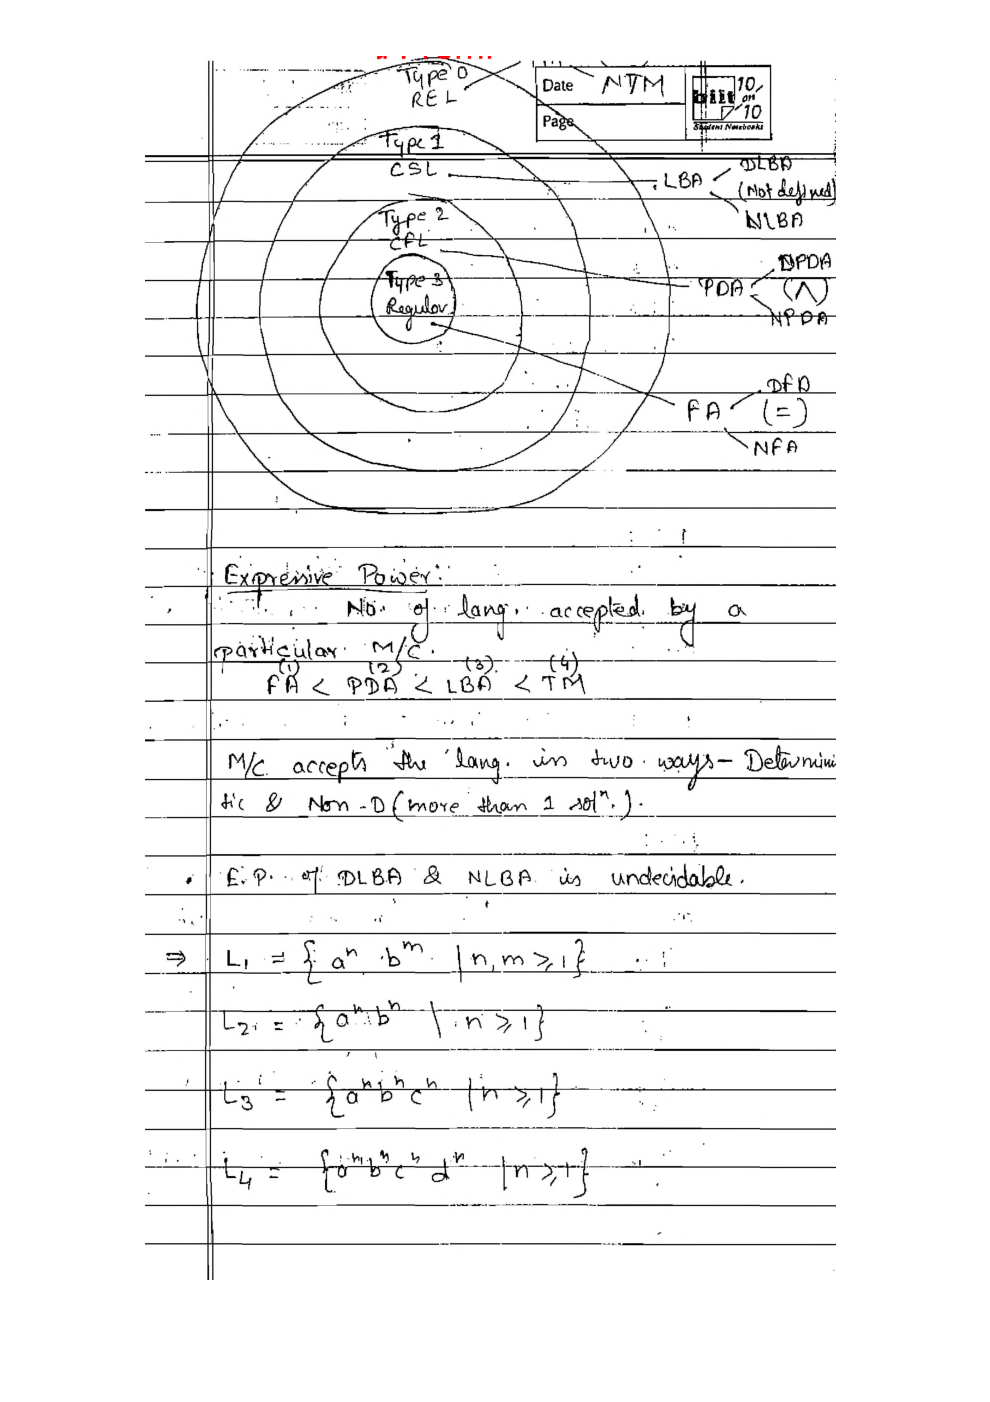 Type 0
REL
Date NTM
Page
biit 10 on 10
Student Notebooks
Type 1
CSL
LBA
DLBA
(Not defined)
NLBA
Type 2
CFL
PDA
DPDA
(∧)
NPDA
Type 3
Regular
FA
DFA
(=)
NFA
Expressive Power:
No. of lang. accepted by a
particular M/C.
(1) (2) (3) (4)
FA < PDA < LBA < TM
M/C accepts the lang. in two ways – Determini
tic & Non-D (more than 1 solⁿ.).
. E.P. of DLBA & NLBA is undecidable.
⇒ L₁ = {aⁿ bᵐ | n, m ≥ 1}
L₂ = {aⁿ bⁿ | n ≥ 1}
L₃ = {aⁿbⁿcⁿ | n ≥ 1}
L₄ = {aᵐbⁿcⁿdⁿ | n ≥ 1}